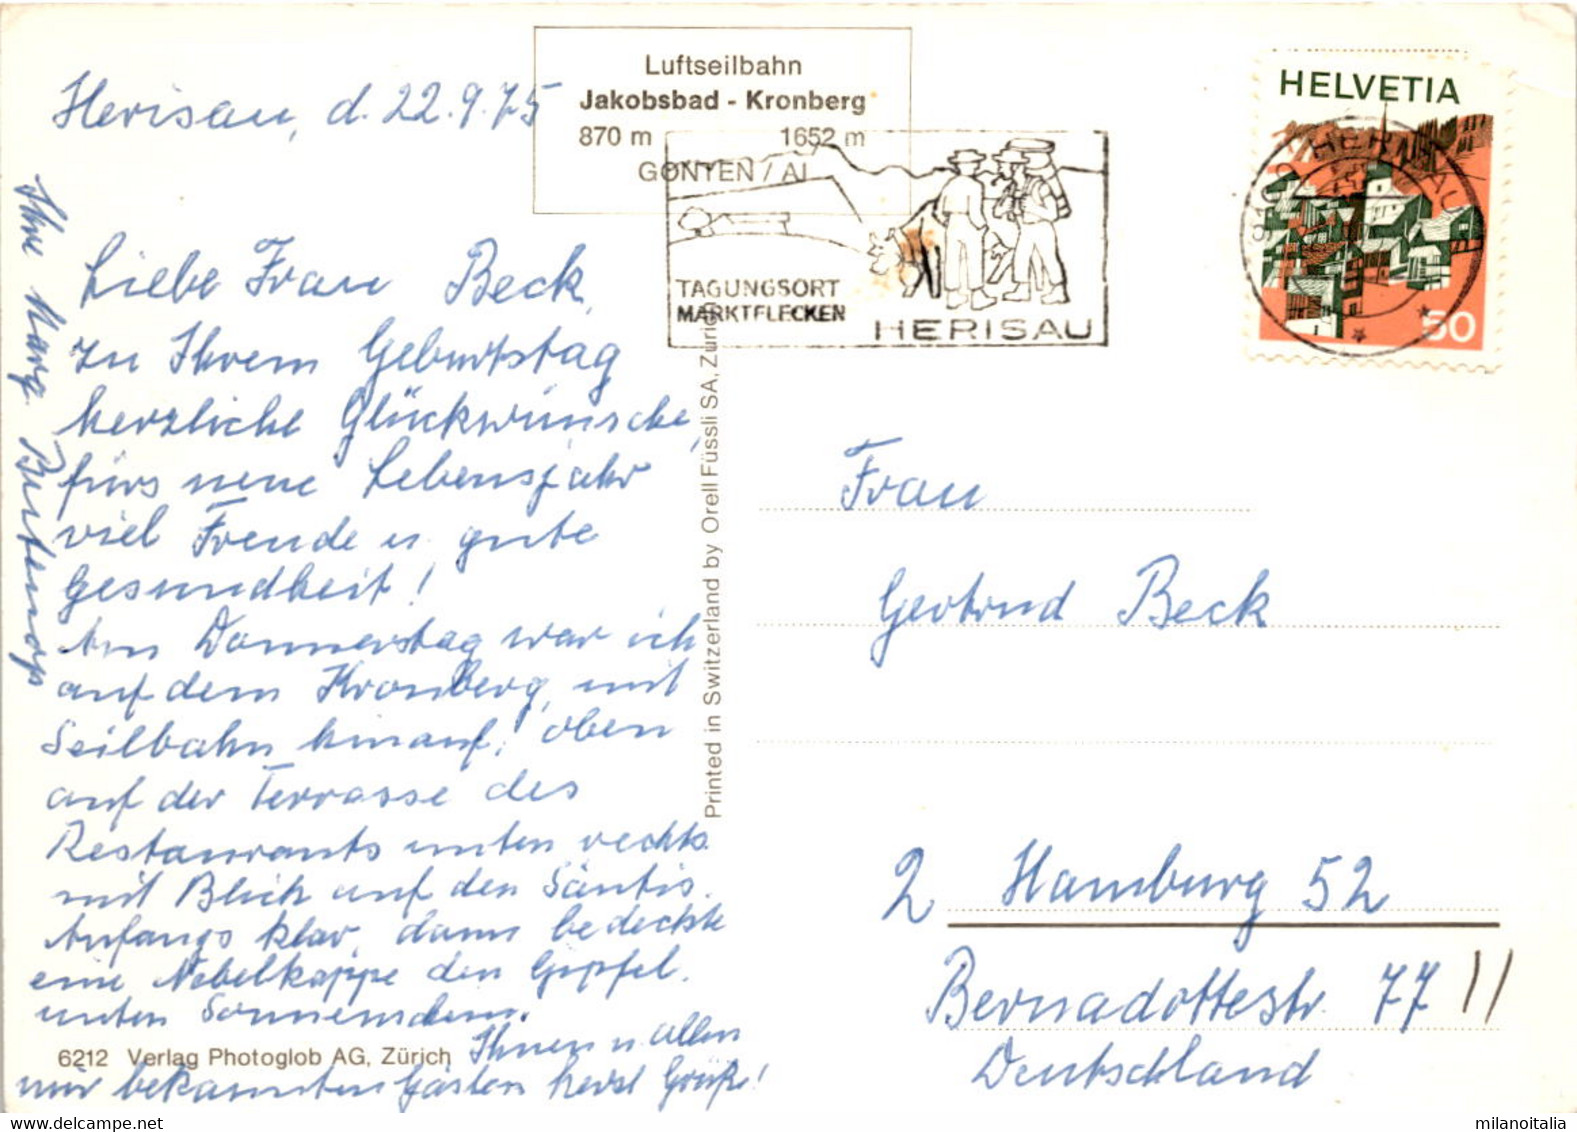 Luftseilbahn
Jakobsbad - Kronberg
870 m 1652 m
GONTEN / AI
TAGUNGSORT
MARKTFLECKEN
HERISAU
HELVETIA
9100 HERISAU
50
Herisau, d. 22.9.75
Liebe Frau Beck,
zu Ihrem Geburtstag
herzliche Glückwünsche,
fürs neue Lebensjahr
viel Freude u. gute
Gesundheit!
Am Donnerstag war ich
auf dem Kronberg, mit
Seilbahn hinauf! oben
auf der Terrasse des
Restaurants unten rechts
mit Blick auf den Säntis.
Anfangs klar, dann bedeckte
eine Nebelkappe den Gipfel.
unten Sonnenschein.
Ihnen u. allen
mir bekannten Gästen herzl. Grüße!
Ihre Marg.
6212 Verlag Photoglob AG, Zürich
Printed in Switzerland by Orell Füssli SA, Zürich
Frau
Gertrud Beck
2 Hamburg 52
Bernadottestr. 77 II
Deutschland
milanoitalia